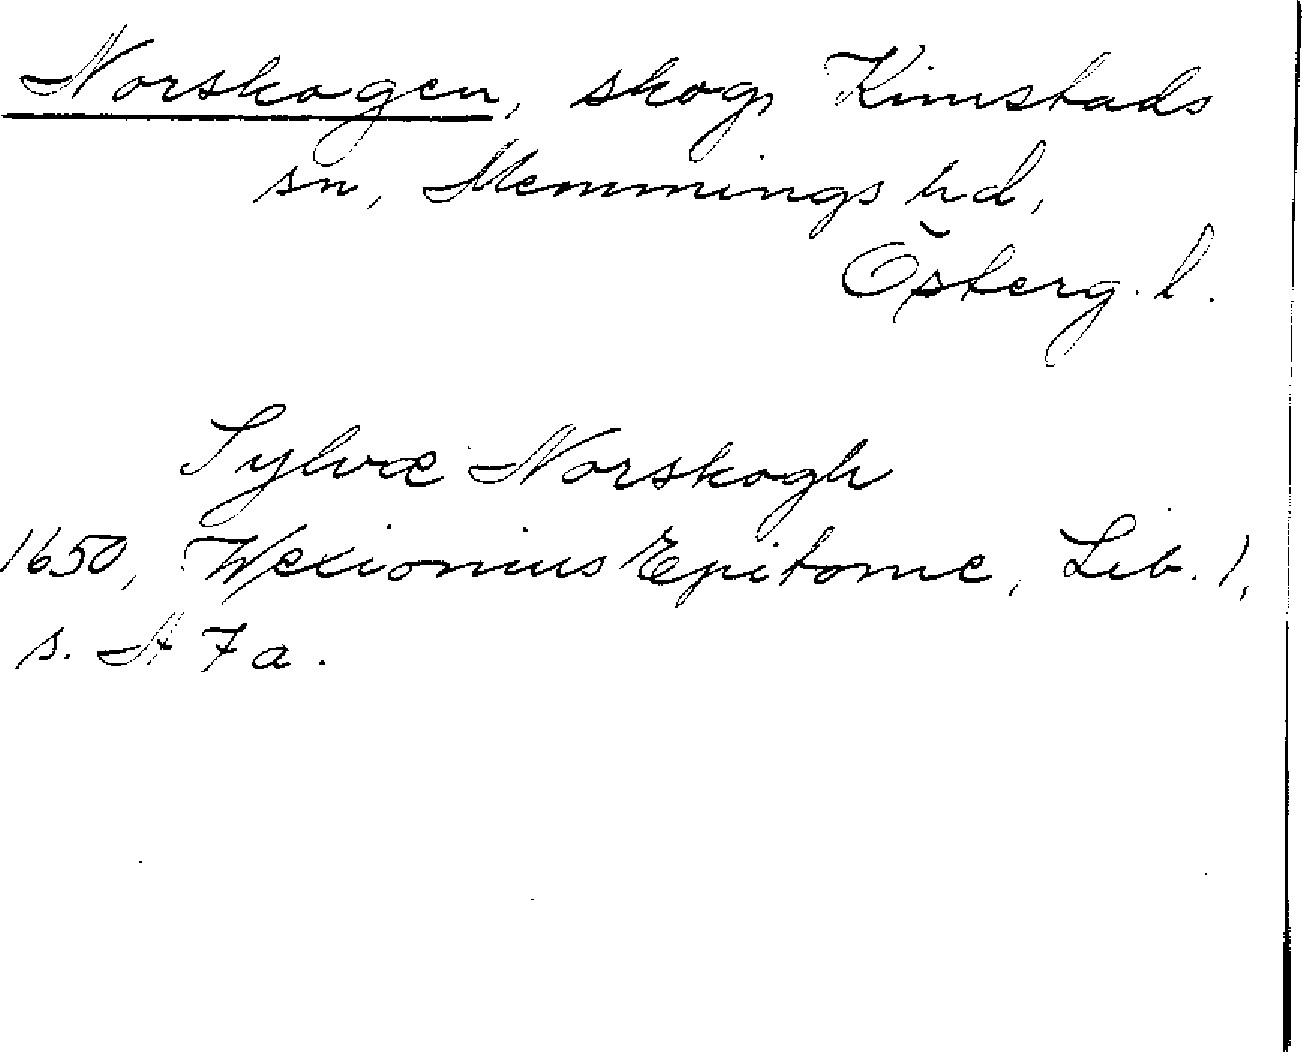 Norskogen, skog, Kimstads
sn, Memmings hd,
Österg. l.
Sylvæ Norskogh
1650, Wexionius Epitome, Lib. 1,
s. A 7 a.